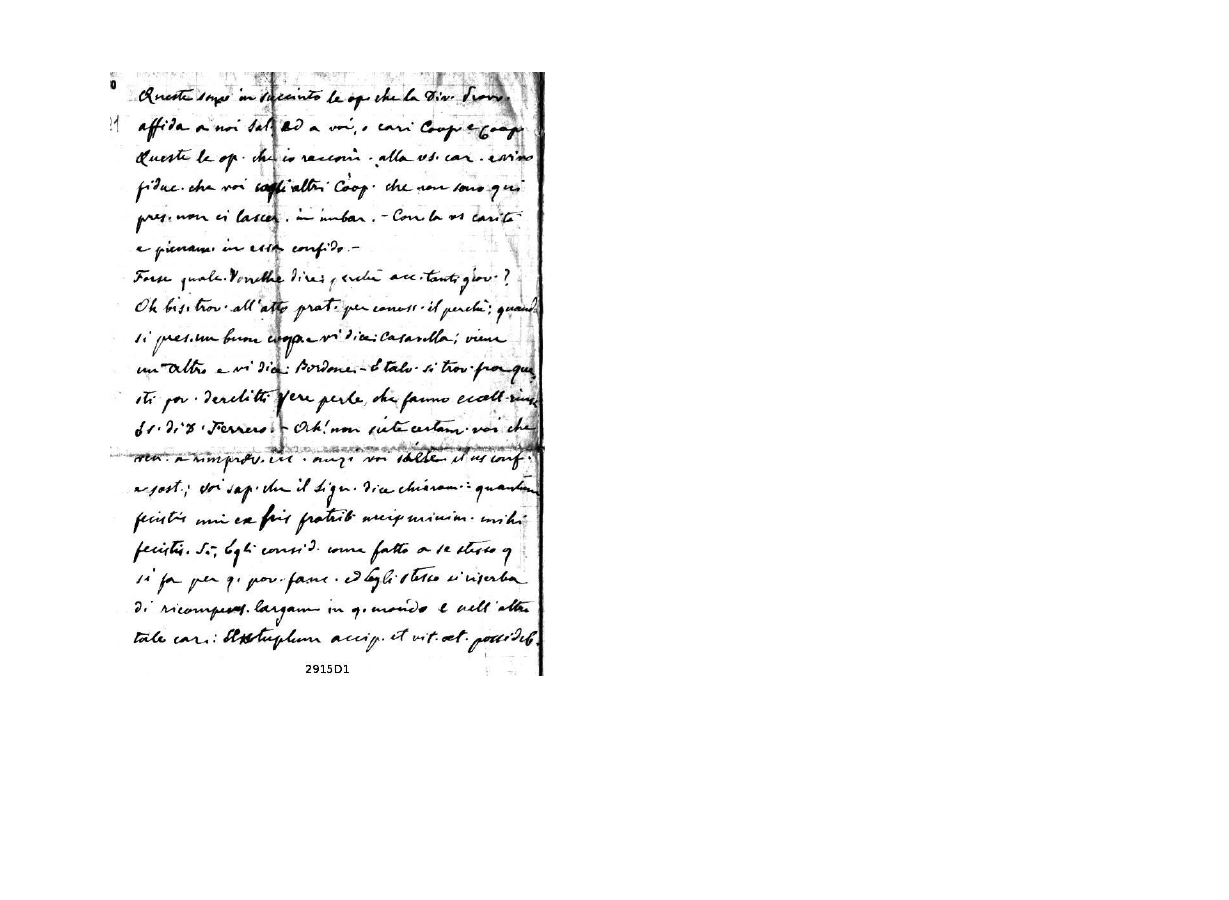 Queste sono in succinto le op. che la Div. Provv.
affida a noi Sal. ed a voi, o cari Coop. e Coop.
Queste le op. che io raccom. alla vs. car. e vivo
fiduc. che voi cogli altri Coop. che non sono qui
pres. non ci lascer. in imbar. - Con la vs carità
e pienam. in essa confido. -
Forse qualc. Vorrebbe dire: perchè acc. tanti giov. ?
Oh bis. trov. all'atto prat. per conosc. il perchè; quand.
si pres. un buon coop. e vi dice: Casasella; viene
un altro e vi dice: Bordone. - E talv. si trov. fra que
sti pov. derelitti vere perle, che fanno eccell. riusc.
Es. di D. Ferrero. - Oh! non siete certam. voi che
ven. a rimprov. anzi voi il vs conf.
e sost.; Voi sap. che il Sign. dice chiaram: quantum
fecistis uni ex fris fratrib meis minim. mihi
fecistis. Sì, Egli consid. come fatto a se stesso q
si fa per q. pov. fanc. ed Egli stesso si riserba
di ricompens. largam in q. mondo e nell'altro
tale cari: accip. et vit. aet. possideb.
2915D1